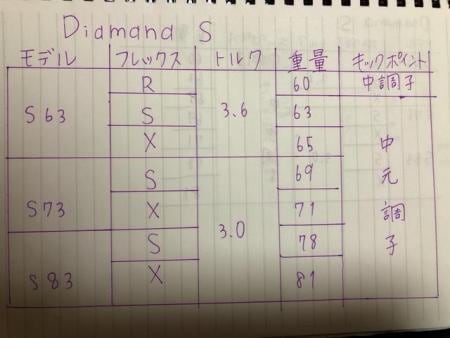 Diamana S
モデル フレックス トルク 重量 キックポイント
S63 R 3.6 60 中調子
S 63
X 65 中
S 69 元
S73 X 3.0 71 調
S 78 子
S83 X 81